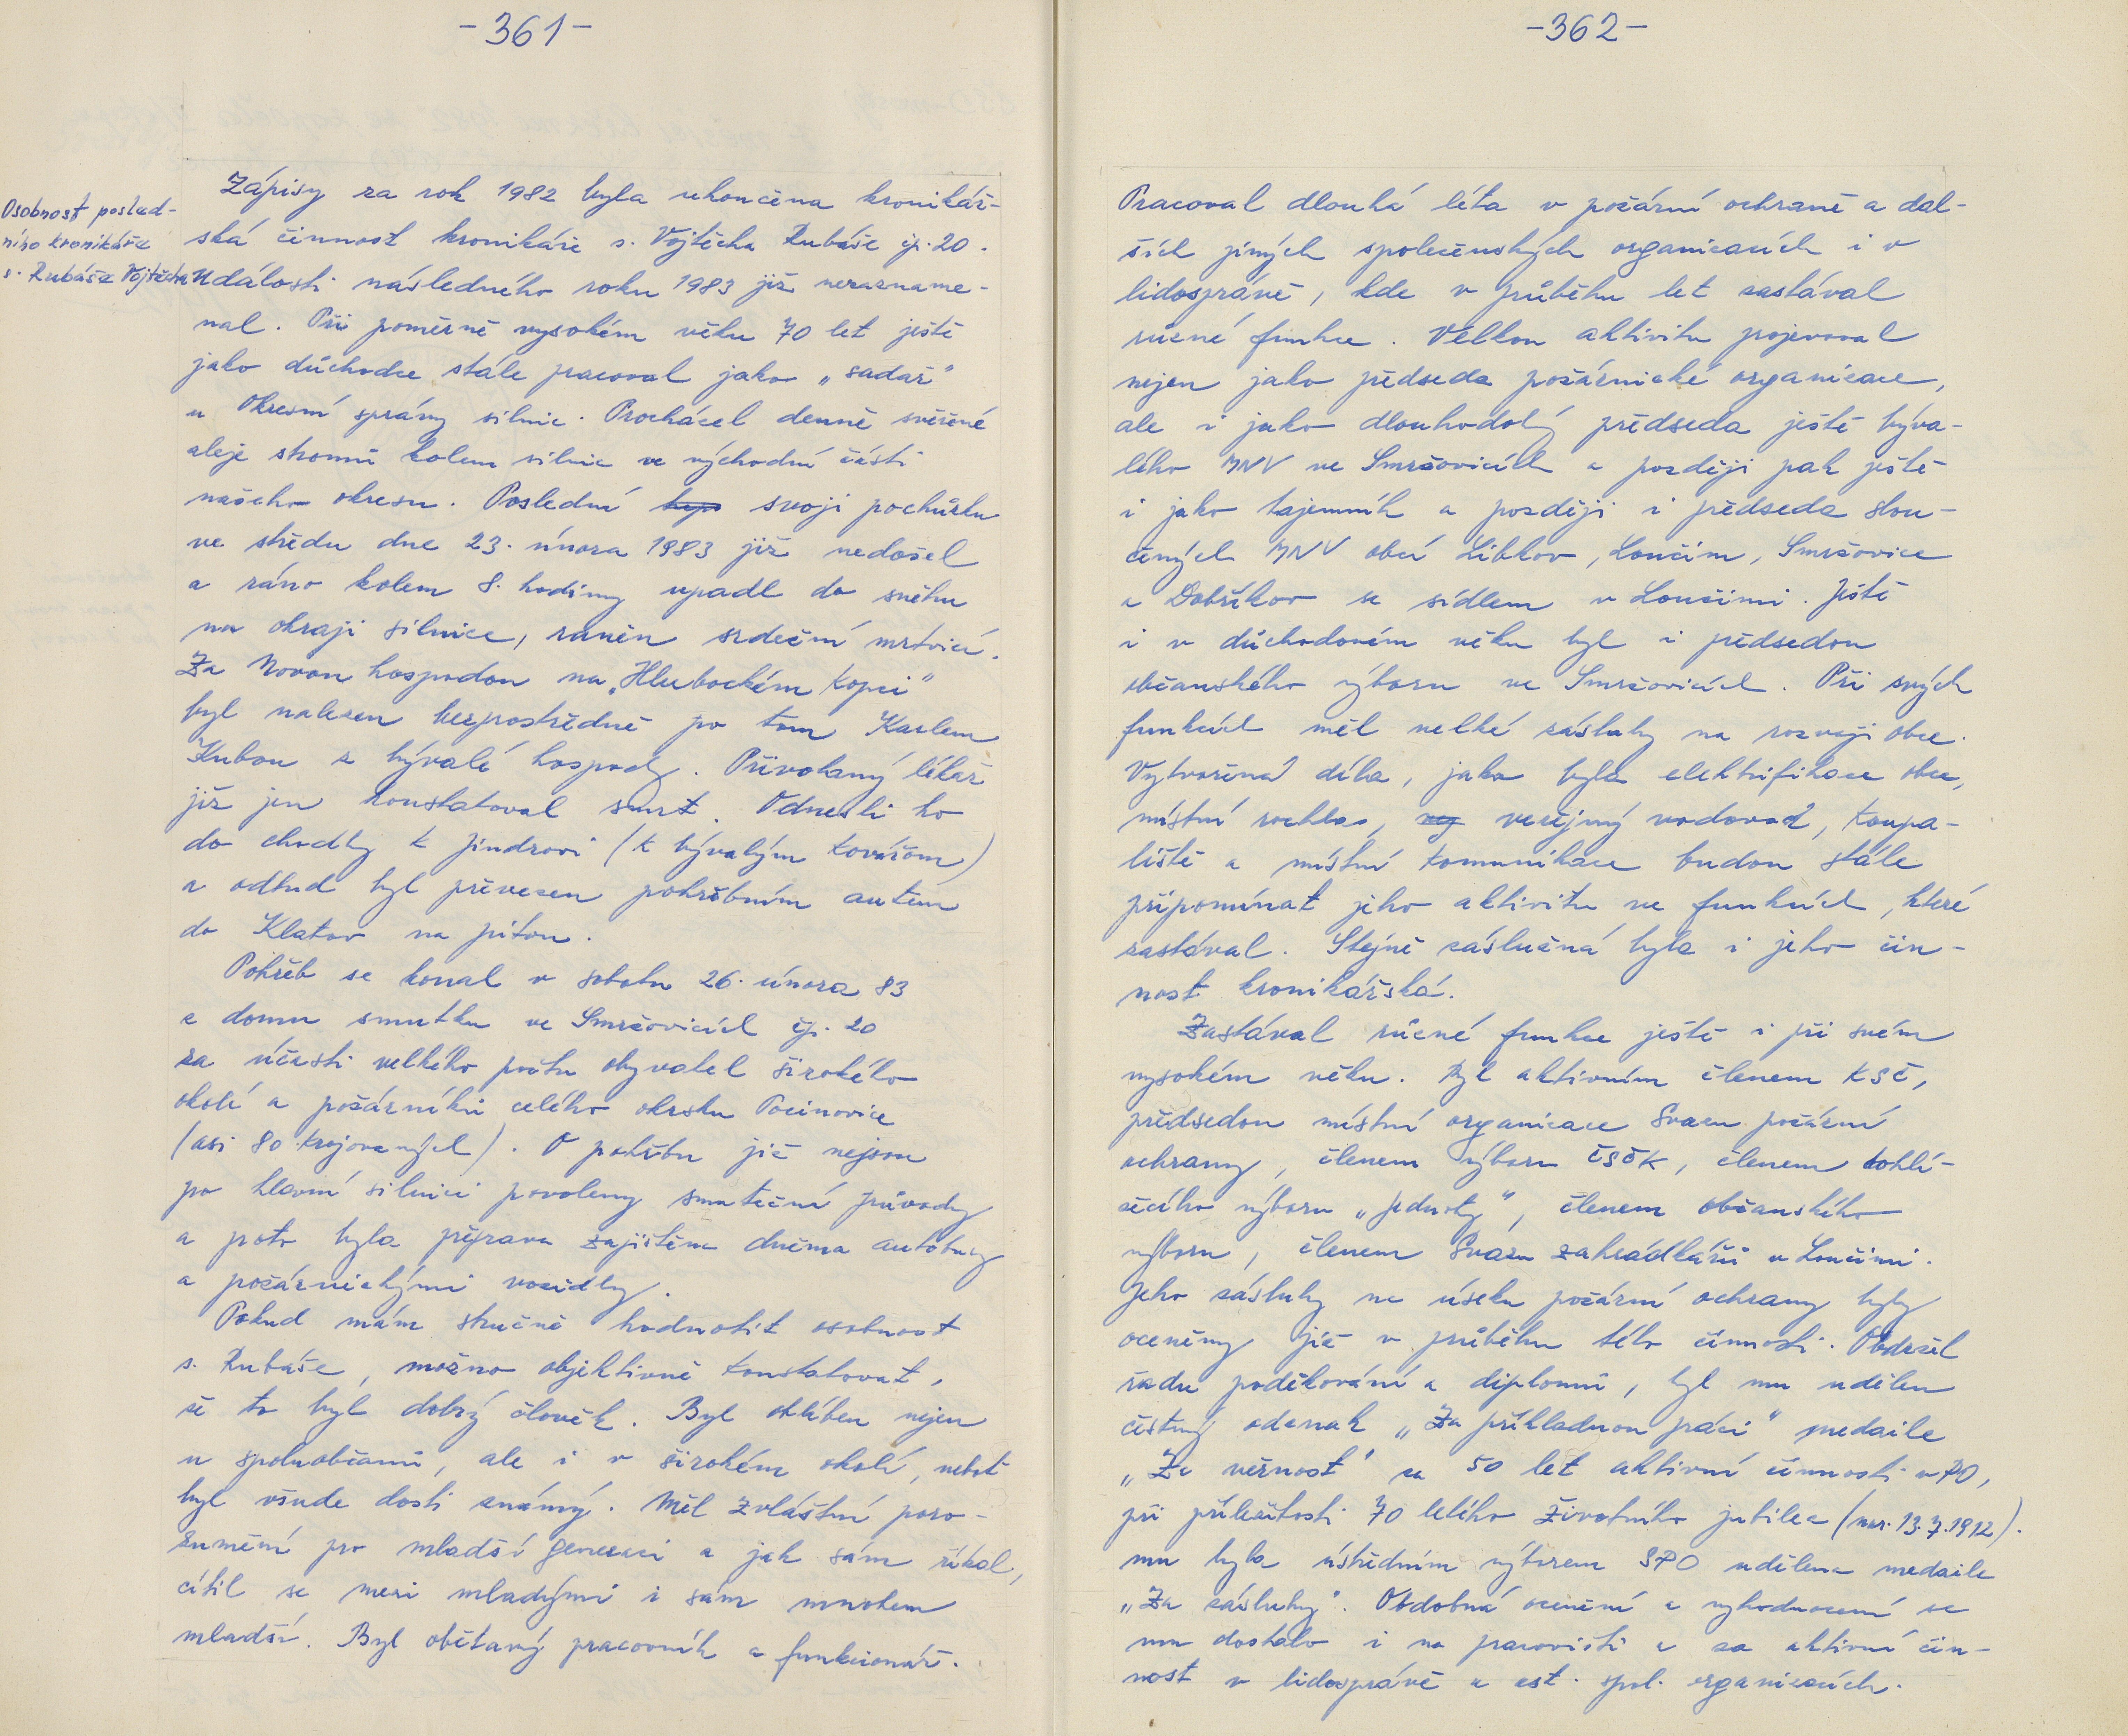 -361-
Osobnost posled-
ního kronikáře
s. Rubáše Vojtěcha
Zápisy za rok 1982 byla ukončena kronikář-
ská činnost kronikáře s. Vojtěcha Rubáše čp. 20.
Události následného roku 1983 již nezazname-
nal. Při poměrně vysokém věku 70 let ještě
jako důchodce stále pracoval jako „sadař"
u Okresní správy silnic. Procházel denně svěřené
aleje stromů kolem silnic ve východní části
našeho okresu. Poslední svoji pochůzku
ve středu dne 23. února 1983 již nedošel
a ráno kolem 8. hodiny upadl do sněhu
na okraji silnice, raněn srdeční mrtvicí.
Za Novou hospodou na „Hlubockém kopci"
byl nalezen bezprostředně po tom Karlem
Kubou z bývalé hospody. Přivolaný lékař
již jen konstatoval smrt. Odnesli ho
do chodby k Jindrovi (k bývalým Kovářom)
a odtud byl převezen pohřebním autem
do Klatov na pitvu.
Pohřeb se konal v sobotu 26. února 83
z domu smutku ve Smržovicích čp. 20
za účasti velkého počtu obyvatel širokého
okolí a požárníků celého okrsku Pocinovice
(asi 80 krojovaných). O pohřbu již nejsou
po hlavní silnici povoleny smuteční průvody
a proto byla přeprava zajištěna dvěma autobusy
a požárnickými vozidly.
Pokud mám stručně hodnotit osobnost
s. Rubáše, možno objektivně konstatovat,
že to byl dobrý člověk. Byl oblíben nejen
u spoluobčanů, ale i v širokém okolí, neboť
byl všude dosti známý. Měl zvláštní poro-
zumění pro mladší generaci a jak sám říkal,
cítil se mezi mladými i sám mnohem
mladší. Byl obětavý pracovník a funkcionář.
-362-
Pracoval dlouhá léta v požární ochraně a dal-
ších jiných společenských organizacích i v
lidosprávě, kde v průběhu let zastával
různé funkce. Velkou aktivitu projevoval
nejen jako předseda požárnické organizace,
ale i jako dlouhodobý předseda ještě býva-
lého MNV ve Smržovicích a později pak ještě
i jako tajemník a později i předseda slou-
čených MNV obcí Libkov, Loučim, Smržovice
a Dobříkov se sídlem v Loučimi. Ještě
i v důchodovém věku byl i předsedou
občanského výboru ve Smržovicích. Při svých
funkcích měl velké zásluhy na rozvoji obce.
Vytvořená díla, jako byla elektrifikace obce,
místní rozhlas, veřejný vodovod, koupa-
liště a místní komunikace budou stále
připomínat jeho aktivitu ve funkcích, které
zastával. Stejně záslužná byla i jeho čin-
nost kronikářská.
Zastával různé funkce ještě i při svém
vysokém věku. Byl aktivním členem KSČ,
předsedou místní organizace Svazu požární
ochrany, členem výboru ČSČK, členem dohlí-
žecího výboru „Jednoty", členem občanského
výboru, členem Svazu zahrádkářů v Loučimi.
Jeho zásluhy na úseku požární ochrany byly
oceněny již v průběhu této činnosti. Obdržel
řadu poděkování a diplomů, byl mu udělen
čestný odznak „Za příkladnou práci" medaile
„Za věrnost" za 50 let aktivní činnosti v PO,
při příležitosti 70 letého životního jubilea (nar. 13.7.1912).
mu byla ústředním výborem SPO udělena medaile
„Za zásluhy". Obdobná ocenění a vyhodnocení se
mu dostalo i na pracovišti a za aktivní čin-
nost v lidosprávě a ost. spol. organizacích.